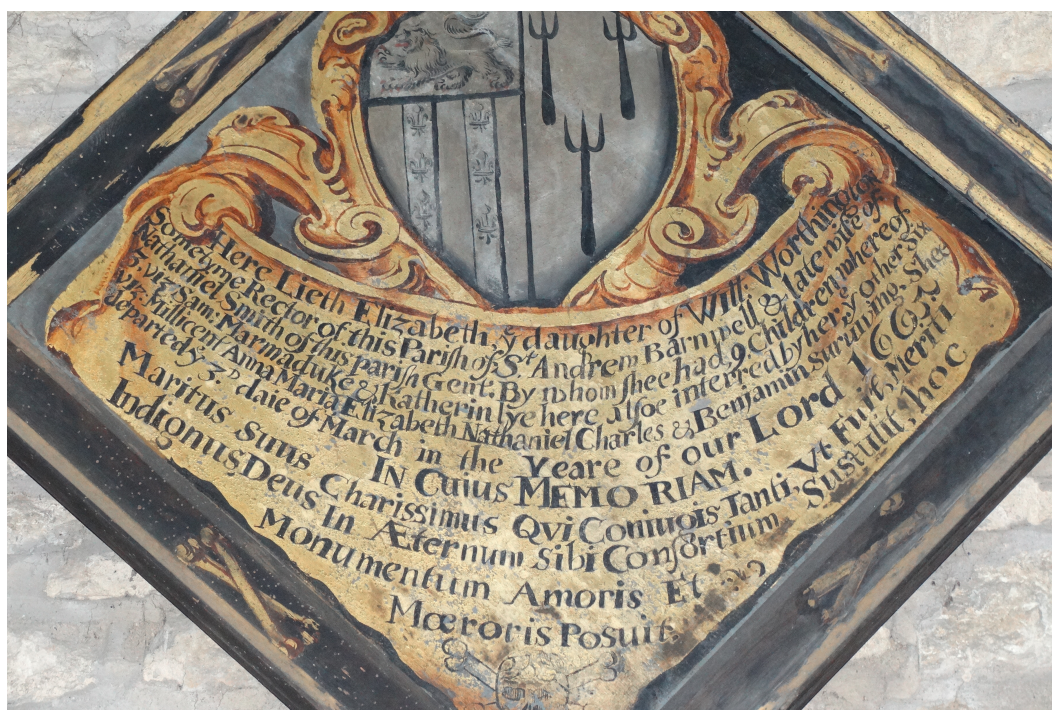 Here Lieth Elizabeth, yᵉ daughter of Will: Worthington
Sometyme Rector of this Parish of Sᵗ Andrew Barnwell & late wife of
Nathaniel Smith of this parish Gent: By whom shee had 9 Children whereof
3. viz Sam: Marmaduke & Katherin lye here, alsoe interred by her, yᵉ other Six
viz: Millicent Anna Maria Elizabeth Nathaniel Charles & Benjamin Surviuing. Shee
departed yᵉ 3.ᴰ daie of March in the Yeare of our Lord 1665.
IN Cuius MEMORIAM.
Maritus suus Charissimus Qvi Coniugis Tanti, Vt Fuit, Meriti
Indignus, Deus In Æternum sibi Consortium Sustulit, hoc
Monumentum Amoris Et
Mœroris Posuit.